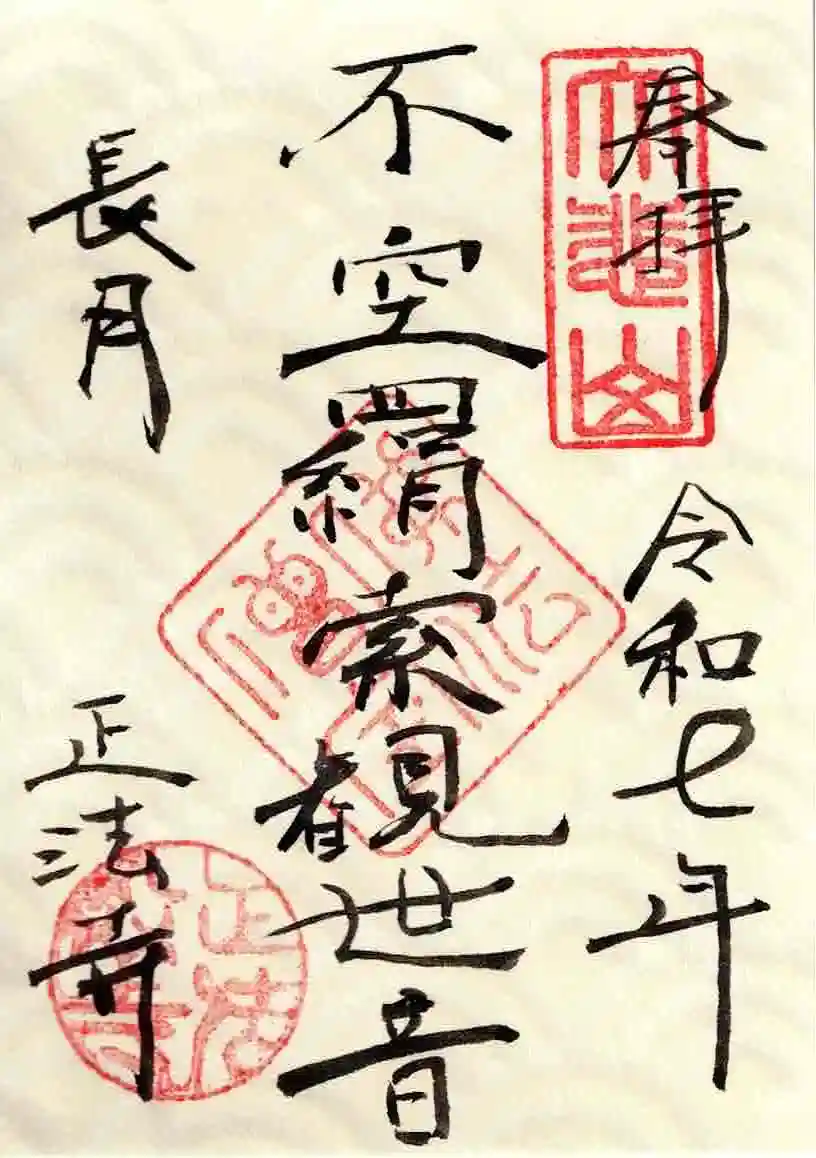 奉拝
令和七年
不空羂索観世音
長月
正法寺
大悲山